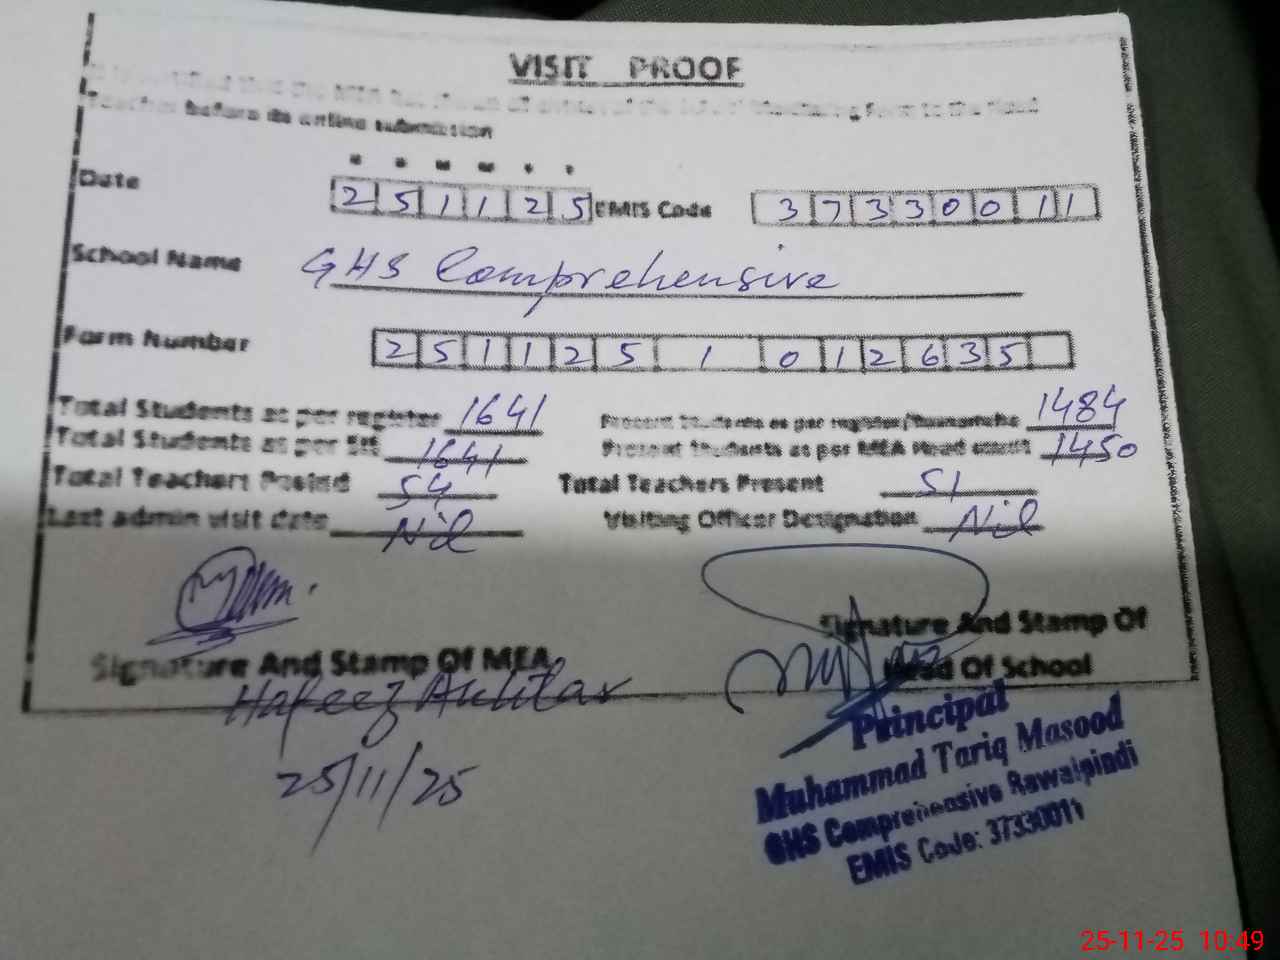 VISIT PROOF
It is certified that the MEA has shown all entries of the Monitoring Form to the Head
Teacher before its online submission
Date 2 5 1 1 2 5 EMIS Code 3 7 3 3 0 0 1 1
School Name GHS Comprehensive
Form Number 2 5 1 1 2 5 1 0 1 2 6 3 5
Total Students as per register 1641 Present Students as per register/ 1484
Total Students as per SIS 1641 Present Students as per MEA Head count 1450
Total Teachers Posted 54 Total Teachers Present 51
Last admin visit date Nil Visiting Officer Designation Nil
Signature And Stamp Of MEA
Signature And Stamp Of
Head Of School
Hafeez Akhtar
25/11/25
Principal
Muhammad Tariq Masood
GHS Comprehensive Rawalpindi
EMIS Code: 37330011
25-11-25 10:49